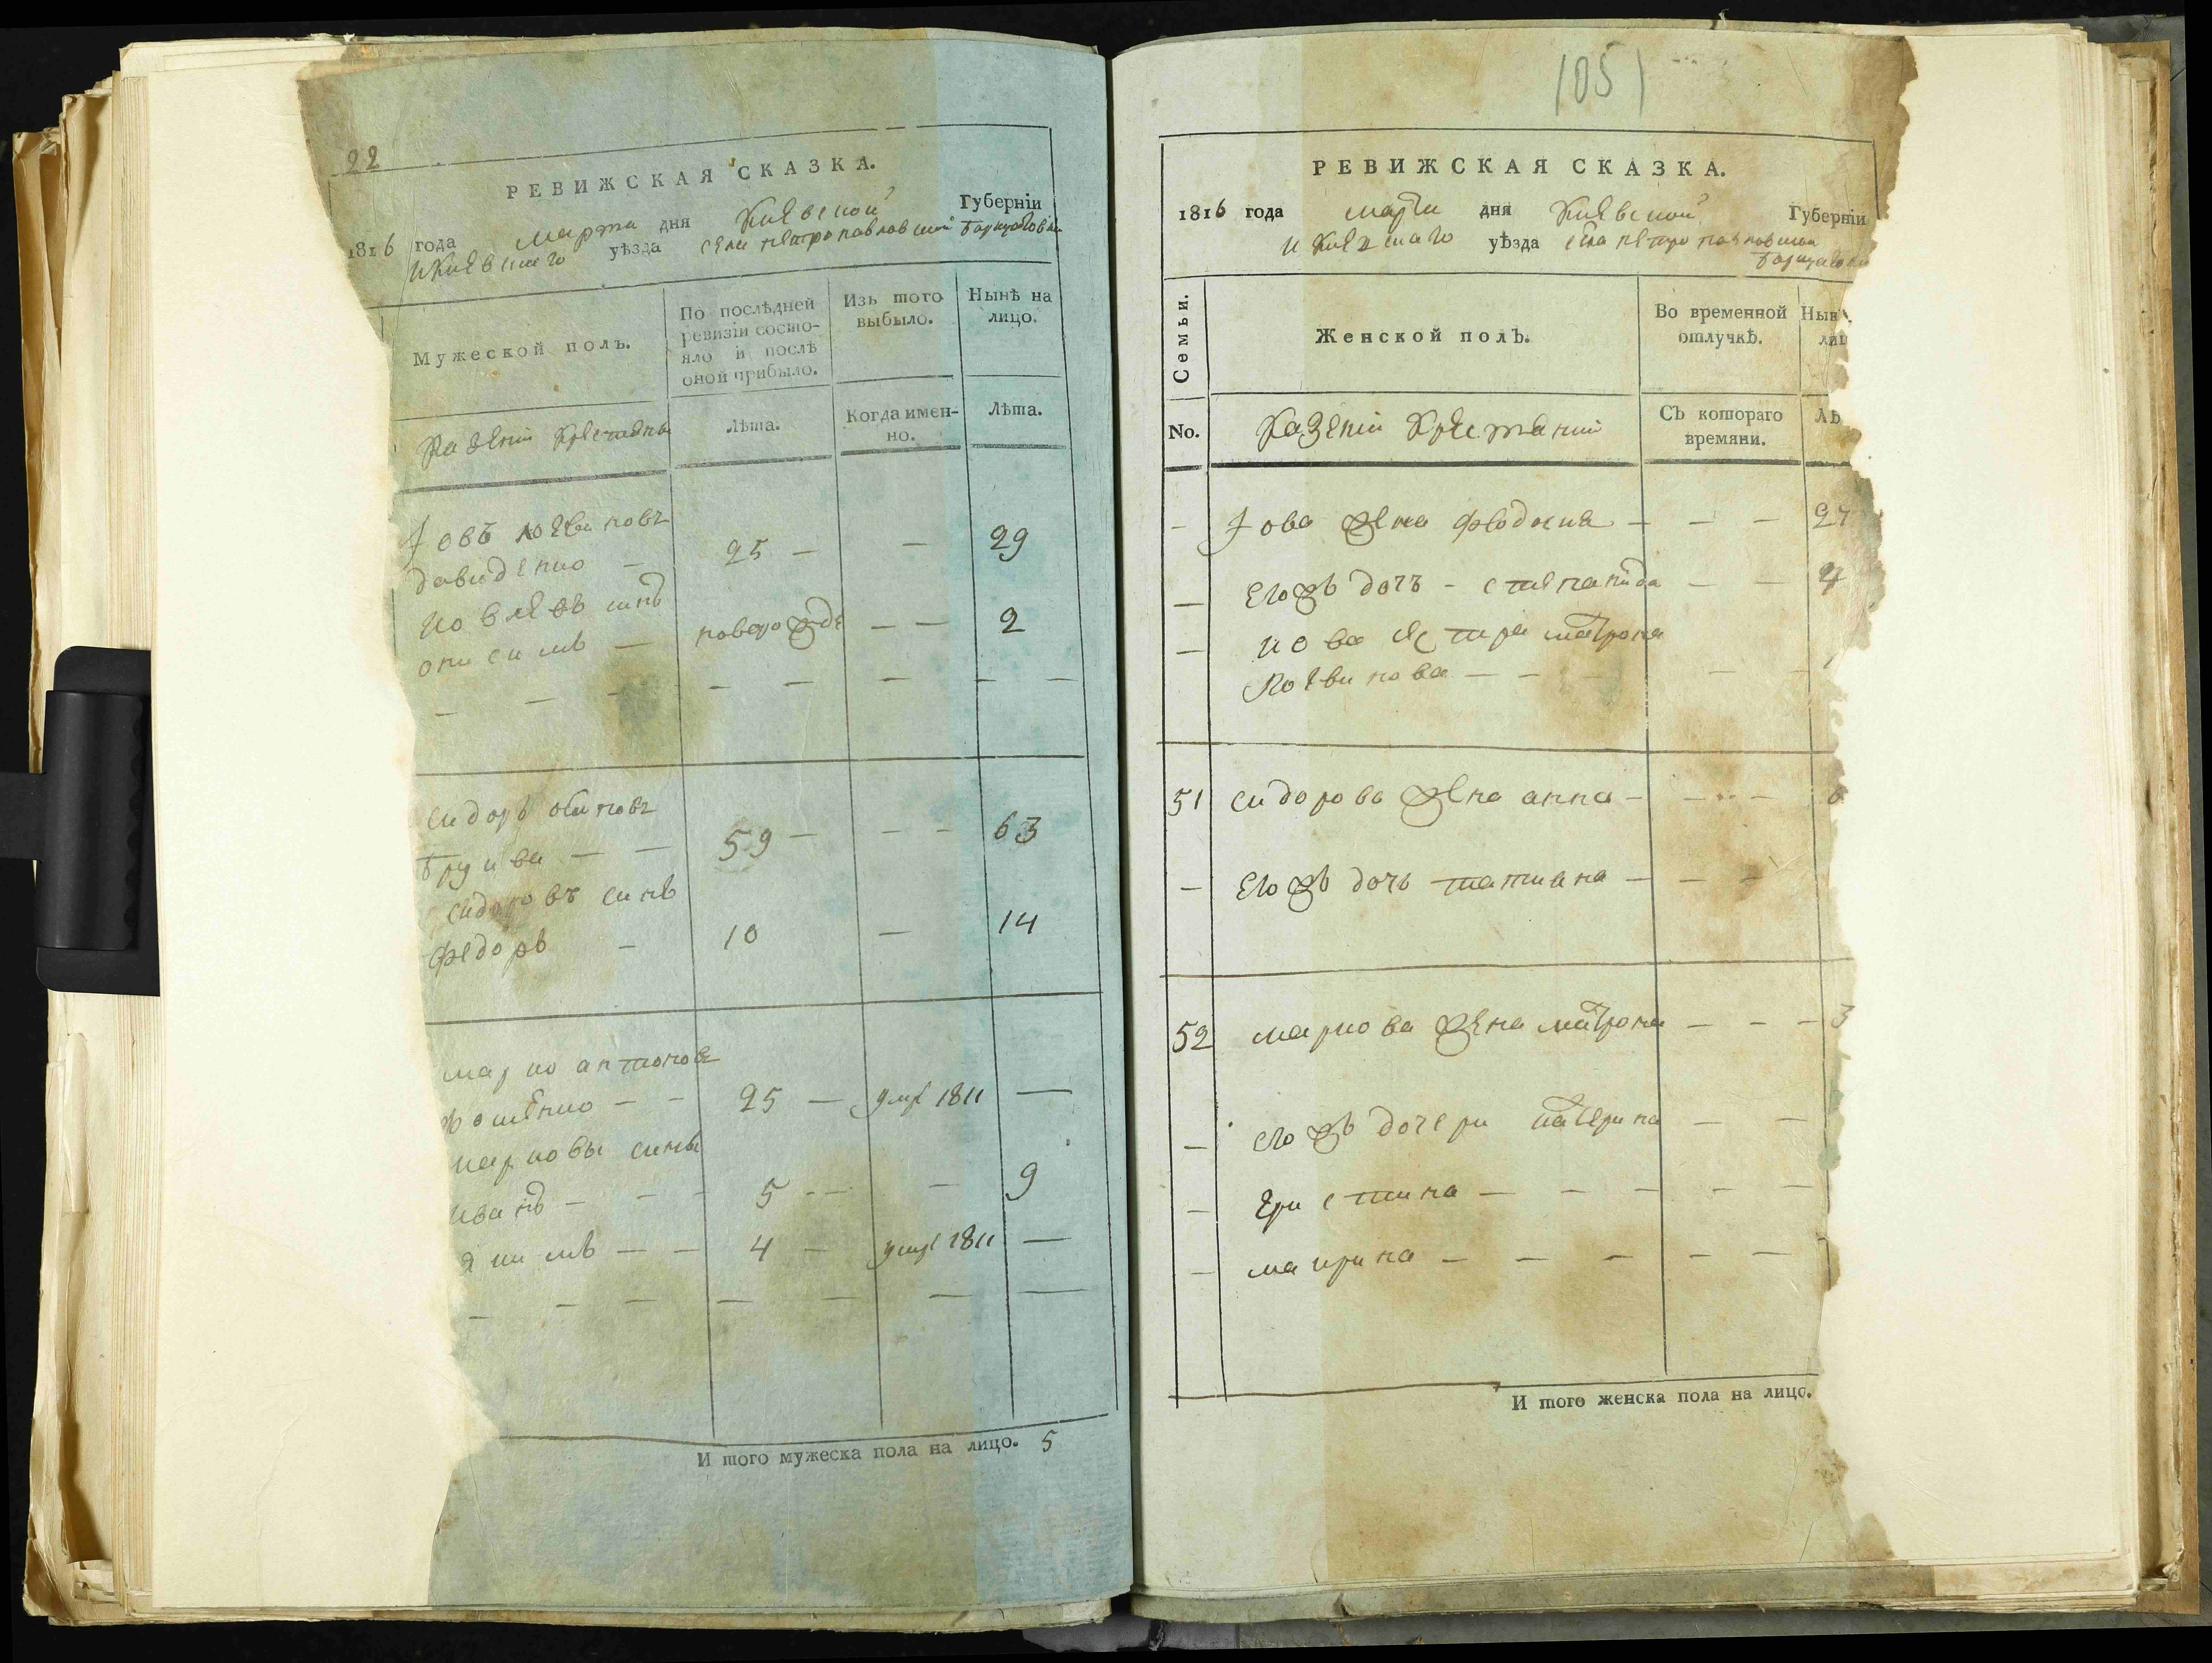 22
РЕВИЖСКАЯ СКАЗКА.
1816 года марта дня Киевской Губерніи
и Киевскаго уѣзда села петропавловской Борщаговки
Мужеской полъ.
По послѣдней ревизіи состояло и послѣ оной прибыло.
Изъ того выбыло.
Нынѣ на лицо.
Казеніи крестяны
Лѣта.
Когда именно.
Лѣта.
Іовъ логвиновъ
давиденко — 25 — — 29
иовлевъ синъ
онисимъ — новорожде — — 2
— — — — — — — —
сидоръ
— — 59 — — — 63
сидоровъ синъ
федоръ — 10 — 14
марко антоновъ
— — 25 — умре 1811 —
марковы сины
иванъ — — — 5 — — — 9
якимъ — — 4 — умре 1811 —
— — — — — — —
И того мужеска пола на лицо. 5
105
РЕВИЖСКАЯ СКАЗКА.
1816 года марта дня Киевской Губерніи
и Киевскаго уѣзда села петропавловской
Борщаговки
Семьи.
Женской полъ.
Во временной отлучкѣ.
No.
Казеніи крестяний
Съ котораго времяни.
— Іова жена феодосия — — —
— Его жъ дочъ — степанида — — 4
— иова сестра матрона
логвинова — — — — —
51 сидорова жена анна — — —
— Его жъ дочь татиана — — —
52 маркова жена матрона — — — 3
— его жъ дочери катерина — —
— христина — — — — —
— марина — — — — —
И того женска пола на лицо.